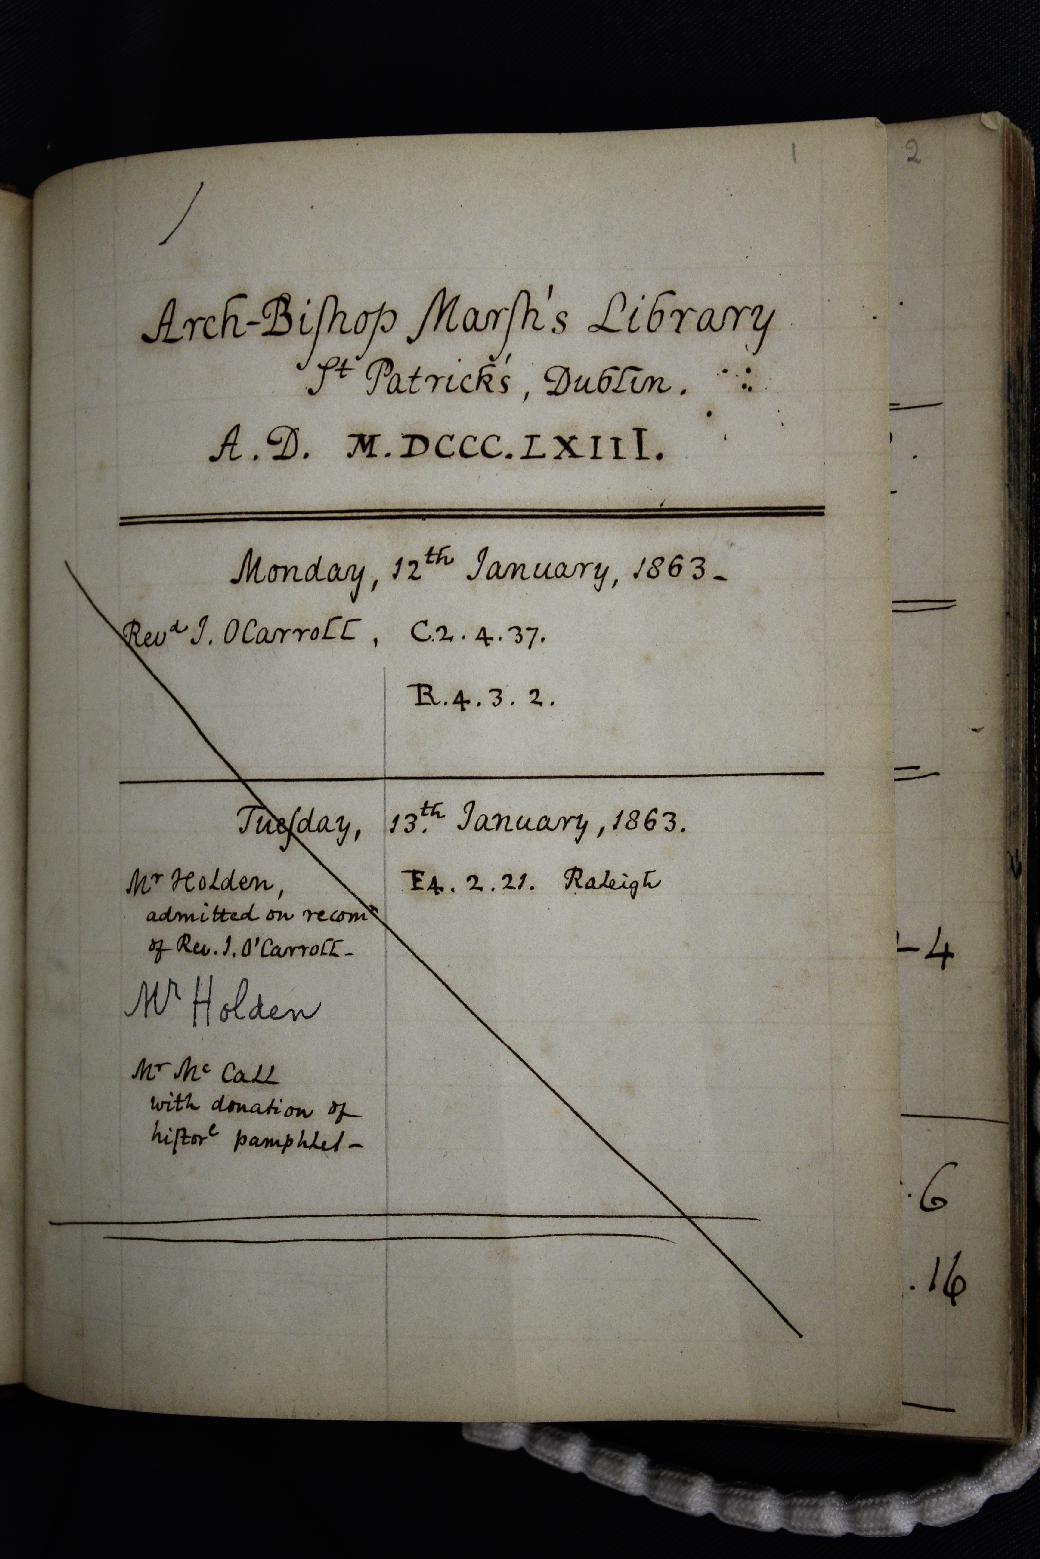 1
2
Arch-Biſhop Marſh's Library
St Patrick's, Dublin.
A.D. M.DCCC.LXIII.
Monday, 12th January, 1863-
Revd J. OCarroll, C.2.4.37.
R.4.3.2.
Tueſday, 13th January, 1863.
Mr Holden, F4.2.21. Raleigh
admitted on recomn
of Rev. J. O'Carroll-
-4
Mr Holden
Mr Mc Call
with donation of
hiſtorl pamphlet-
.6
.16